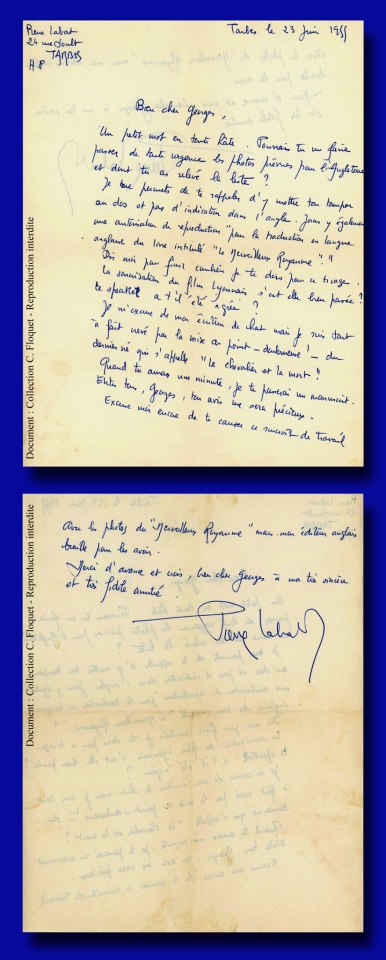 Pierre Labat
24 rue Soult
TARBES
H P
Tarbes le 23 Juin 1955
Bien cher Georges,
Un petit mot en toute hâte. Pourrais tu me faire
passer de toute urgence les photos prévues pour l'Angleterre
et dont tu as relevé la liste ?
Je me permets de te rappeler d'y mettre ton tampon
au dos et pas d'indication dans l'angle. Joins y également
une autorisation de reproduction pour la traduction en langue
anglaise du livre intitulé "le Merveilleux Royaume".
Dis moi par finir combien je te dois pour ce tirage.
La sonorisation du film Lyonnais s'est elle bien passée ?
Le spectacle a t'il été agréé ?
Je m'excuse de mon écriture de chat mais je suis tout
à fait crevé par la mise au point - douloureuse ! - du
dernier né qui s'appelle "le chevalier et la mort".
Quand tu auras une minute, je te passerai un manuscrit.
Entre tous, Georges, ton avis me sera précieux.
Excuse moi encore de te causer ce surcroît de travail
avec les photos du "Merveilleux Royaume" mais mon éditeur anglais
pour les avoir.
Merci d'avance et crois, bien cher Georges à ma très sincère
et très fidèle amitié.
Pierre Labat
Document : Collection C. Floquet - Reproduction interdite
Document : Collection C. Floquet - Reproduction interdite